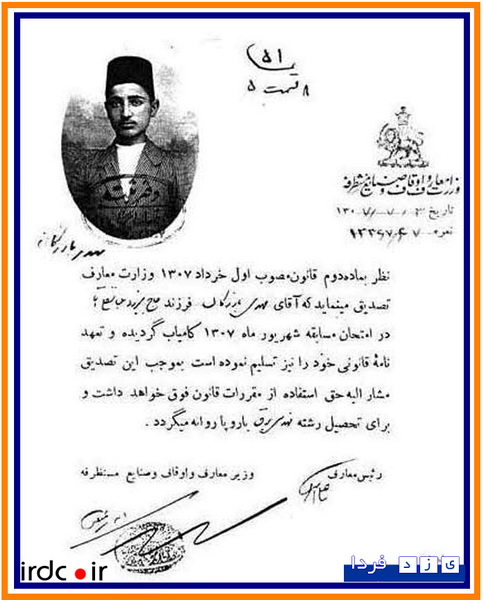 ۵۱
قسمت ۵
وزارت معارف و اوقاف و صنایع مستظرفه
تاریخ
نمره
مهدی بازرگان
نظر بماده دوم قانون مصوب اول خرداد ۱۳۰۷ وزارت معارف
تصدیق مینماید که آقای مهدی بازرگان فرزند حاج
در امتحان مسابقه شهریور ماه ۱۳۰۷ کامیاب گردیده و تعهد
نامهٔ قانونی خود را نیز تسلیم نموده است بموجب این تصدیق
مشارالیه حق استفاده از مقررات قانون فوق خواهد داشت و
برای تحصیل رشته مهندسی برق باروپا روانه میگردد .
رئیس معارف
وزیر معارف و اوقاف و صنایع مستظرفه
irdc.ir
یزد فردا